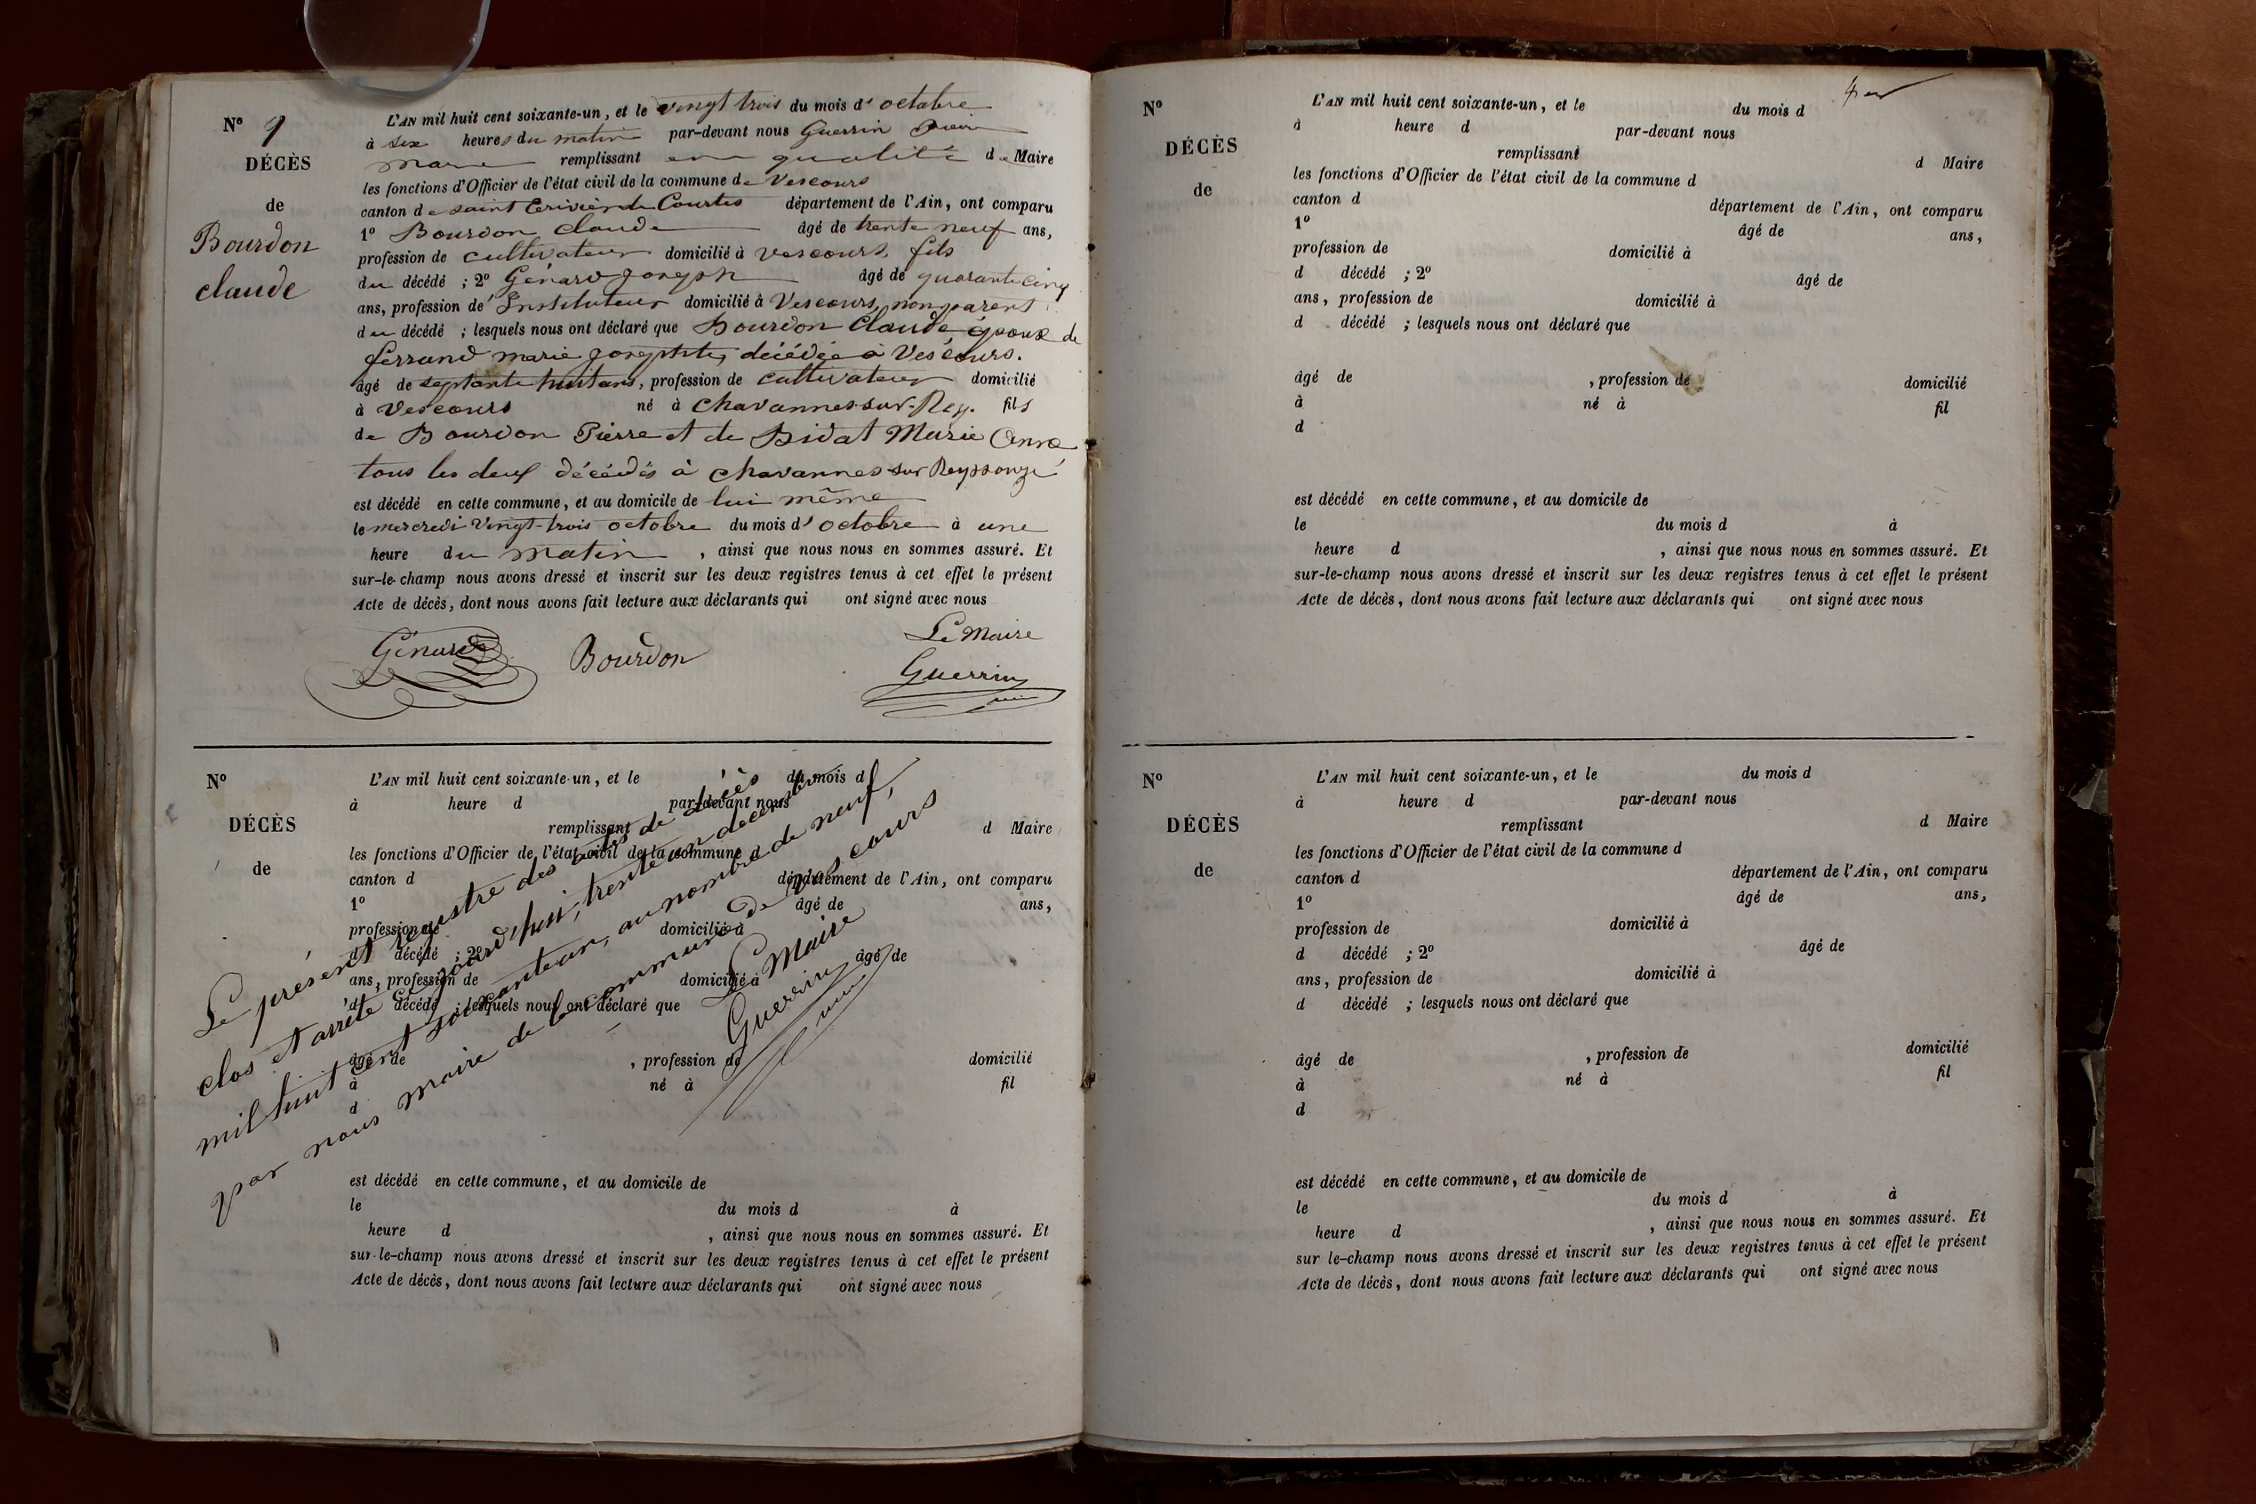 N° 9
DÉCÈS
de
Bourdon
claude
L'AN mil huit cent soixante-un, et le vingt trois du mois d'octobre
à six heures du matin par-devant nous Guerrin
maire remplissant en qualité de Maire
les fonctions d'Officier de l'état civil de la commune de Vescours
canton de saint Trivier de Courtes département de l'Ain, ont comparu
1° Bourdon Claude âgé de trente neuf ans,
profession de cultivateur domicilié à vescours, fils
du décédé ; 2° Génard Joseph âgé de quarante cinq
ans, profession de Instituteur domicilié à Vescours, non parent
du décédé ; lesquels nous ont déclaré que Bourdon Claude époux de
ferrand marie Josephte, décédée à Vescours.
âgé de septante huit ans, profession de cultivateur domicilié
à Vescours né à chavannes-sur-Rey. fils
de Bourdon Pierre et de Bidat Marie Anne
tous les deux décédés à chavannes-sur Reyssouze
est décédé en cette commune, et au domicile de lui même
le mercredi vingt-trois octobre du mois d'octobre à une
heure du matin, ainsi que nous nous en sommes assuré. Et
sur-le-champ nous avons dressé et inscrit sur les deux registres tenus à cet effet le présent
Acte de décès, dont nous avons fait lecture aux déclarants qui ont signé avec nous
Le Maire
Génard Bourdon Guerrin
N°
DÉCÈS
de
L'AN mil huit cent soixante-un, et le du mois d
à heure d par-devant nous
remplissant d Maire
les fonctions d'Officier de l'état civil de la commune d
canton d département de l'Ain, ont comparu
1° âgé de ans,
profession de domicilié à
d décédé ; 2° âgé de
ans, profession de domicilié à
d décédé ; lesquels nous ont déclaré que
âgé de , profession de domicilié
à né à fil
d
est décédé en cette commune, et au domicile de
le du mois d à
heure d , ainsi que nous nous en sommes assuré. Et
sur-le-champ nous avons dressé et inscrit sur les deux registres tenus à cet effet le présent
Acte de décès, dont nous avons fait lecture aux déclarants qui ont signé avec nous
Le présent registre des actes de décès
clos et arrêté cejourd'hui, trente un décembre
mil huit cent soixante un, au nombre de neuf,
par nous maire de la commune de Vescours
Le Maire
Guerrin
N°
DÉCÈS
de
L'AN mil huit cent soixante-un, et le du mois d
à heure d par-devant nous
remplissant d Maire
les fonctions d'Officier de l'état civil de la commune d
canton d département de l'Ain, ont comparu
1° âgé de ans,
profession de domicilié à
d décédé ; 2° âgé de
ans, profession de domicilié à
d décédé ; lesquels nous ont déclaré que
âgé de , profession de domicilié
à né à fil
d
est décédé en cette commune, et au domicile de
le du mois d à
heure d , ainsi que nous nous en sommes assuré. Et
sur-le-champ nous avons dressé et inscrit sur les deux registres tenus à cet effet le présent
Acte de décès, dont nous avons fait lecture aux déclarants qui ont signé avec nous
N°
DÉCÈS
de
L'AN mil huit cent soixante-un, et le du mois d
à heure d par-devant nous
remplissant d Maire
les fonctions d'Officier de l'état civil de la commune d
canton d département de l'Ain, ont comparu
1° âgé de ans,
profession de domicilié à
d décédé ; 2° âgé de
ans, profession de domicilié à
d décédé ; lesquels nous ont déclaré que
âgé de , profession de domicilié
à né à fil
d
est décédé en cette commune, et au domicile de
le du mois d à
heure d , ainsi que nous nous en sommes assuré. Et
sur le-champ nous avons dressé et inscrit sur les deux registres tenus à cet effet le présent
Acte de décès, dont nous avons fait lecture aux déclarants qui ont signé avec nous